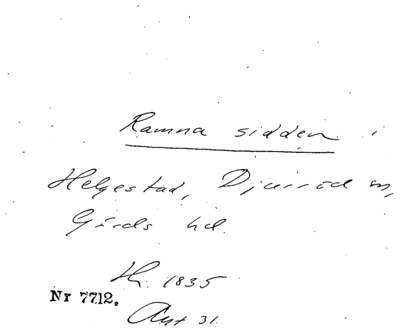 Ramna sidden i
Helgestad, Djurröd sn,
Gärds hd.
Hr. 1835
Nr 7712.
Akt 31.